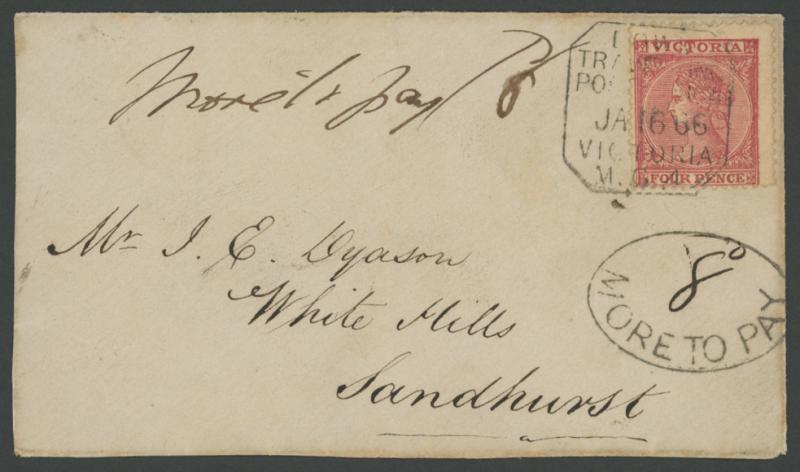 More to pay 8
VICTORIA
FOUR PENCE
JA 16 66
VICTORIA
Mr J. E. Dyason
White Hills
Sandhurst
8d
MORE TO PAY